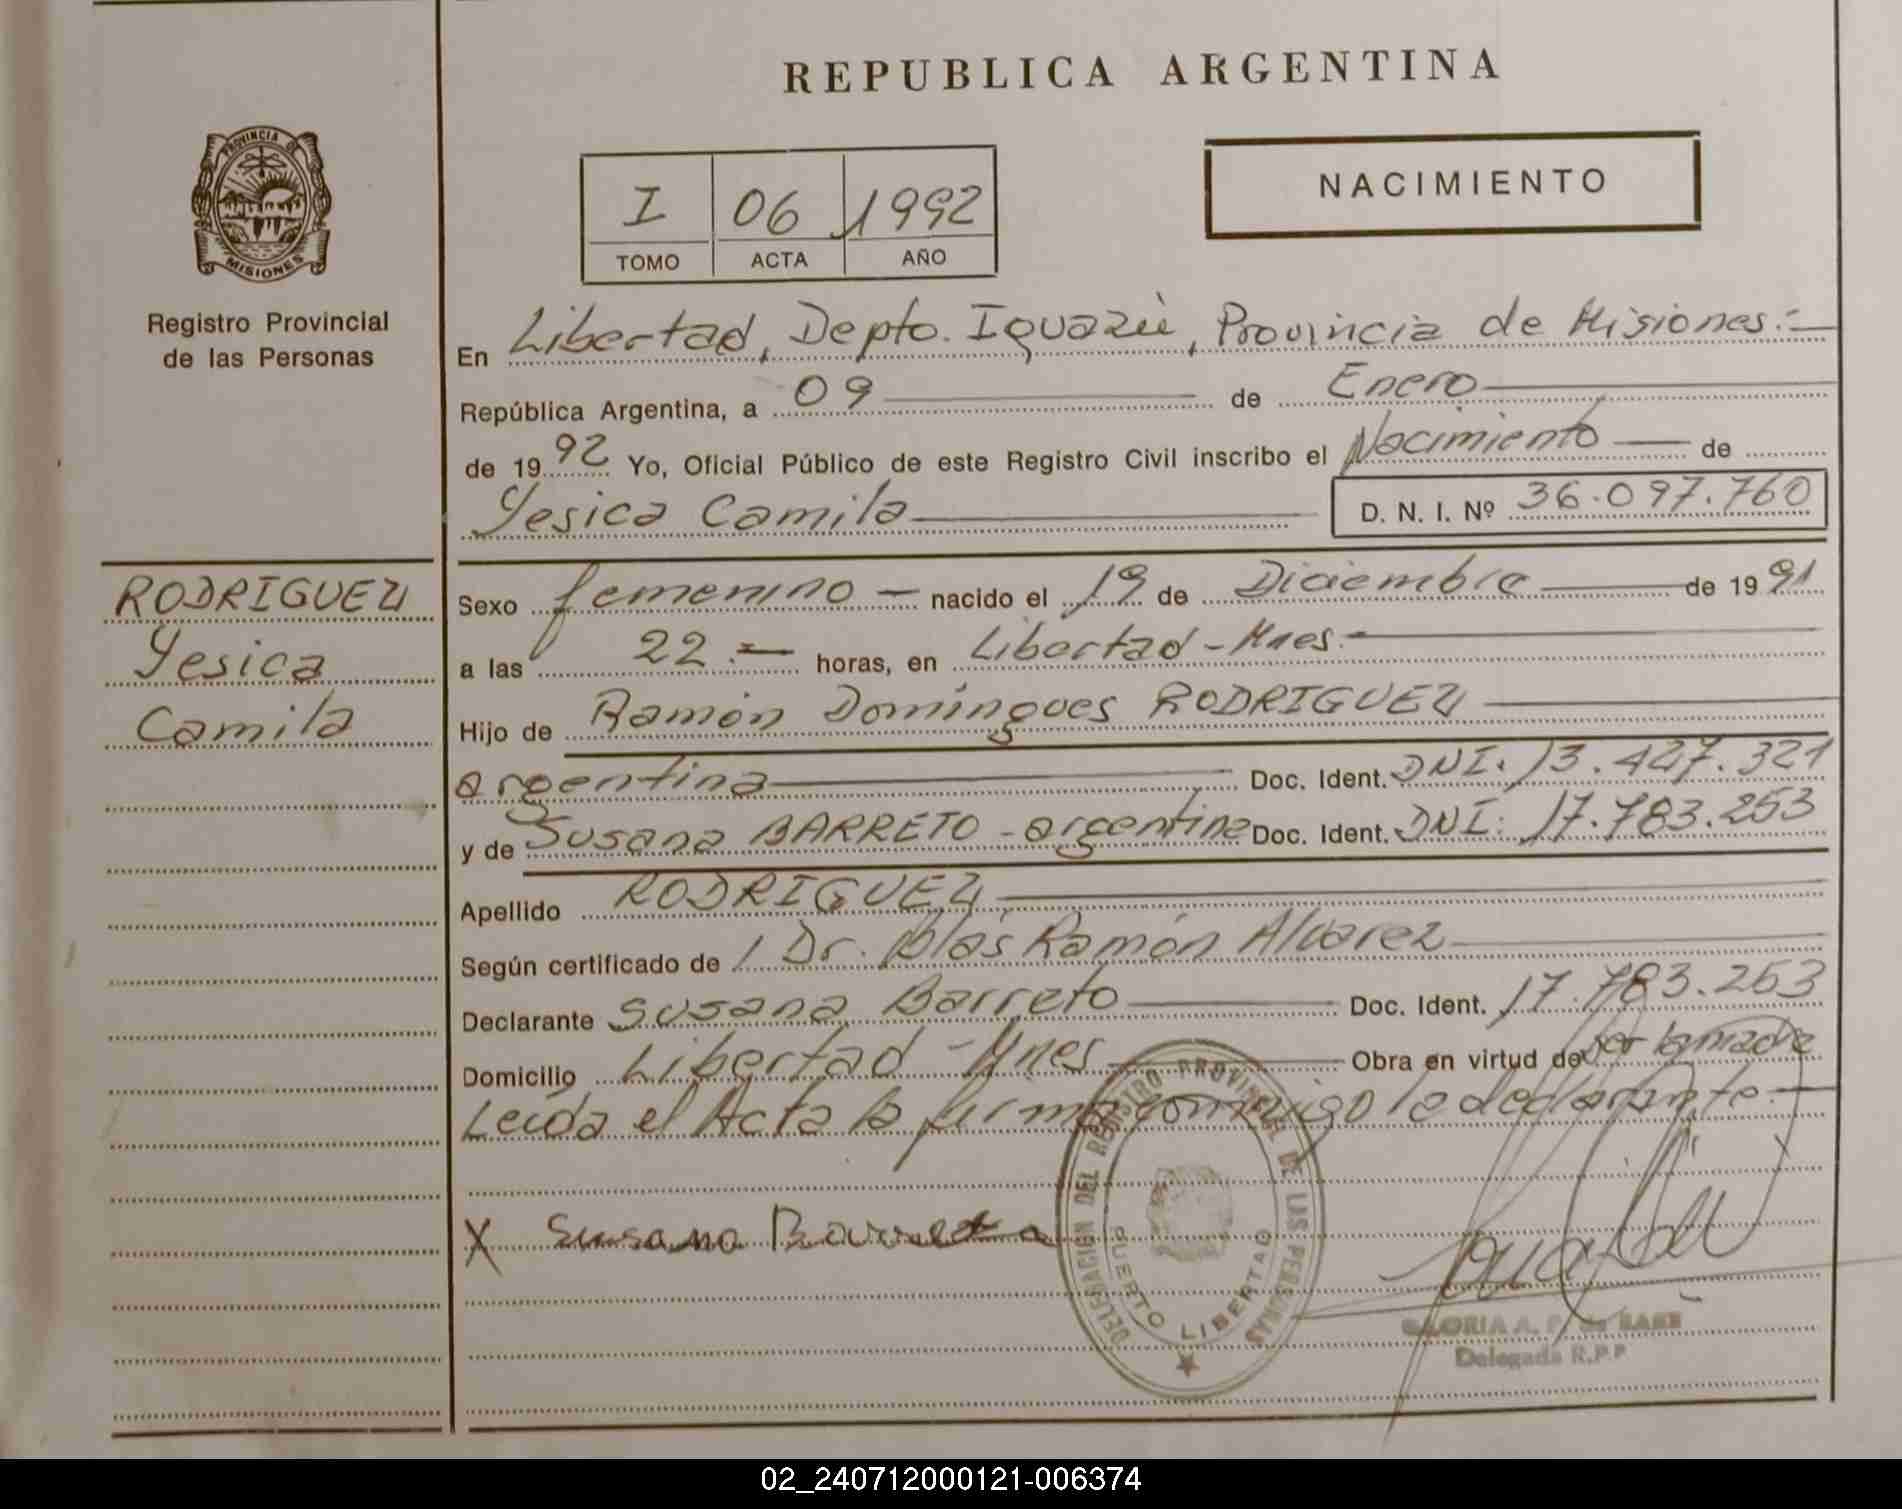 REPUBLICA ARGENTINA
PROVINCIA DE
MISIONES
Registro Provincial
de las Personas
I 06 1992
TOMO ACTA AÑO
NACIMIENTO
En Libertad, Depto. Iguazú, Provincia de Misiones.-
República Argentina, a 09 de Enero
de 1992 Yo, Oficial Público de este Registro Civil inscribo el Nacimiento de
Yesica Camila D. N. I. Nº 36.097.760
RODRIGUEZ
Yesica
Camila
Sexo femenino - nacido el 19 de Diciembre de 1991
a las 22.- horas, en Libertad - Mnes.-
Hijo de Ramón Domíngues RODRIGUEZ
argentina Doc. Ident. DNI. 13.427.321
y de Susana BARRETO - argentina Doc. Ident. DNI: 17.783.253
Apellido RODRIGUEZ
Según certificado de Dr. Blás Ramón Alvarez
Declarante Susana Barreto Doc. Ident. 17.783.253
Domicilio Libertad - Mnes Obra en virtud de ser la madre
Leída el Acta la firma conmigo la declarante.-
X Susana Barreto
DELEGACION DEL REGISTRO PROVINCIAL DE LAS PERSONAS
PUERTO LIBERTAD
GLORIA A. P. de
Delegada R.P.P
02_240712000121-006374